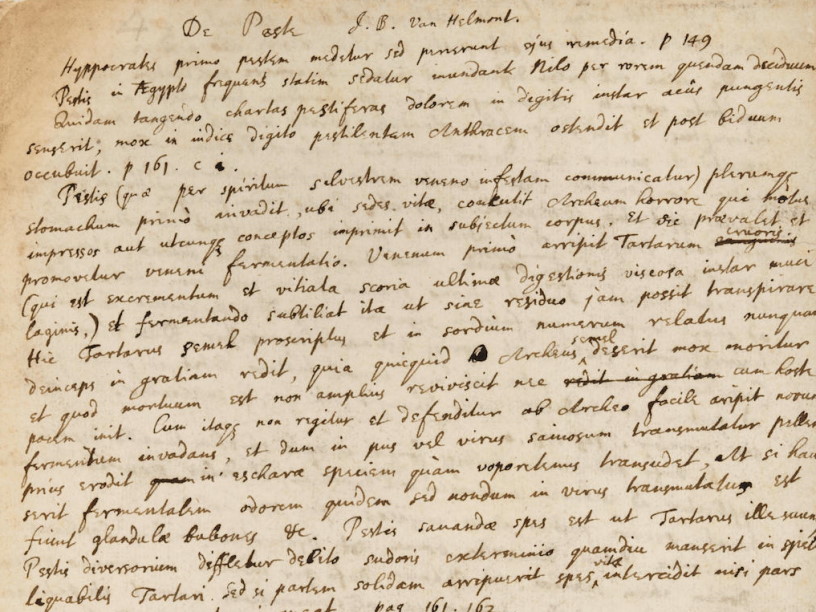 De Peste J. B. Van Helmont.
Hyppocrates primo pestem medetur sed perierunt ejus remedia. p 149
Pestis in Ægypto frequens statim sedatur inundante Nilo per rorem quendam deciduum
Quidam tangendo chartas pestiferas dolorem in digitis instar acûs pungentis
senserit, mox in indice digito pestilentem Anthracem ostendit et post biduum
occubuit. p 161. c
Pestis (quæ per spiritum silvestrem veneno infestam communicatur) plerumqe
stomachum primò invadit, ubi sedes vitæ, concutit Archeum horrore qui motus
impressos aut utcunqe conceptos imprimit in subjectum corpus. Et sic prævalet et
promovetur veneni fermentatio. Venenum primò arripit Tartarum sanguinis cruoris
(qui est excrementum et vitiata scoria ultimæ digestionis viscosa instar muci
laginis,) et fermentando subtiliat ita ut sine residuo jam possit transpirare
Hic Tartarus semel proscriptus et in sordium numerum relatus nunquam
deinceps in gratiam redit, quia quicquid Archeus semel deserit mox moritur
et quod mortuum est non amplius reviviscit nec redit in gratiam cum hoste
pacem init. Cum itaqe non regitur et defenditur ab Archeo facile aripit novum
fermentum invadens, et dum in pus vel virus saniosum transmutatur pellem
prius erodit quam in escharæ speciem quàm voporetenus transudet, At si hau
serit fermentalem odorem quidem sed nondum in virus transmutatum est
fiunt glandulæ bubones &c. Pestis sanandæ spes est ut Tartarus ille suum
Pestis diversorium deffletur debito sudoris exterminio quamdiu manserit in specie
liquabilis Tartari. Sed si partem solidam arripuerit spes vitæ intercidit nisi pars
pag 161. 162